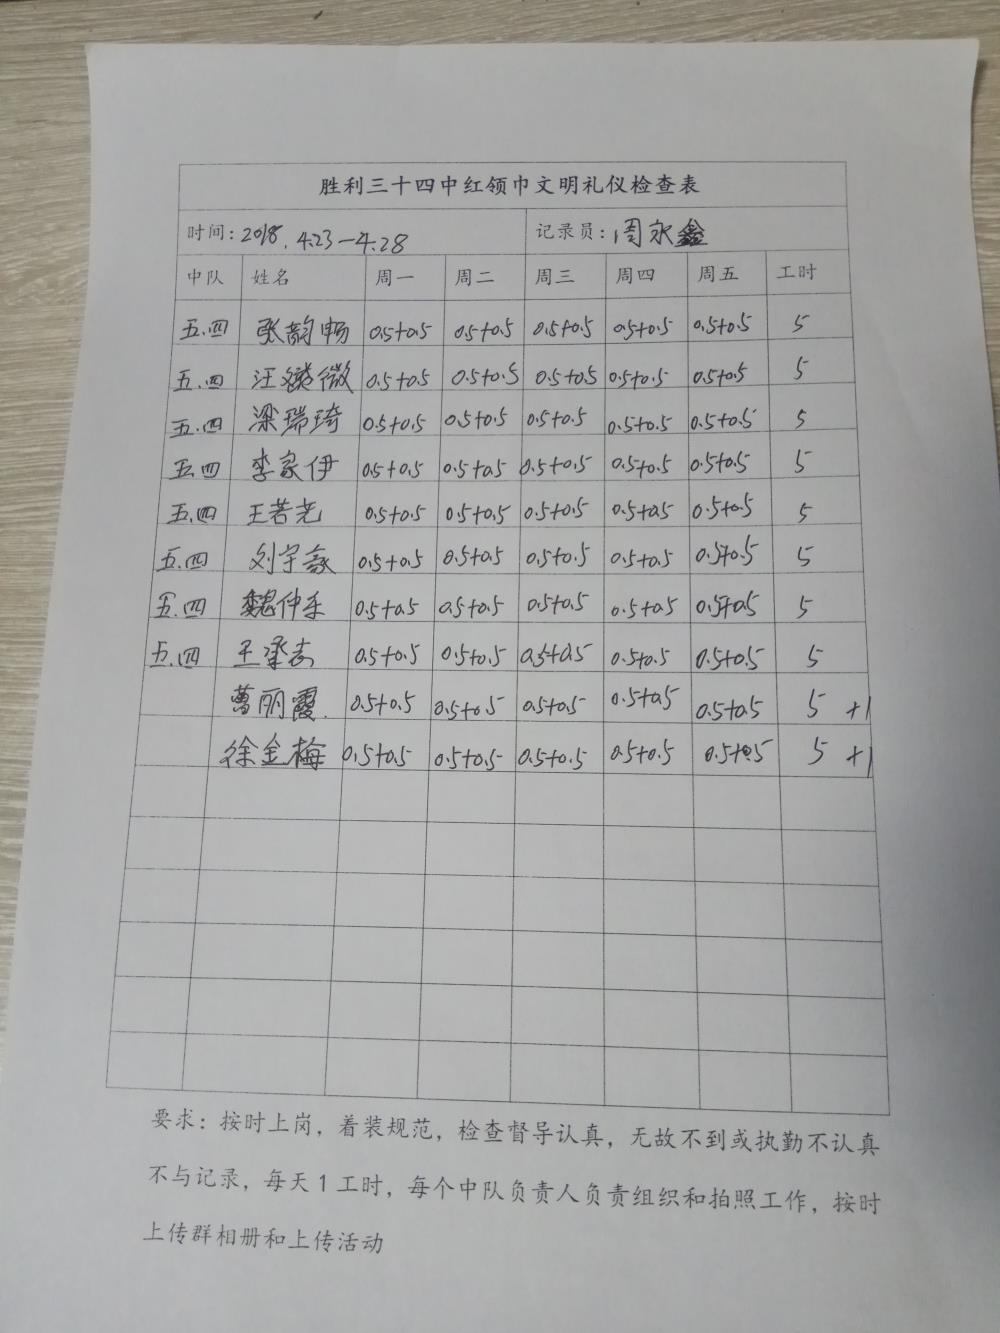 胜利三十四中红领巾文明礼仪检查表
时间：2018.4.23—4.28 记录员：周永鑫
中队 姓名 周一 周二 周三 周四 周五 工时
五.四 张韵畅 0.5+0.5 0.5+0.5 0.5+0.5 0.5+0.5 0.5+0.5 5
五.四 汪 微 0.5+0.5 0.5+0.5 0.5+0.5 0.5+0.5 0.5+0.5 5
五.四 梁瑞琦 0.5+0.5 0.5+0.5 0.5+0.5 0.5+0.5 0.5+0.5 5
五.四 李家伊 0.5+0.5 0.5+0.5 0.5+0.5 0.5+0.5 0.5+0.5 5
五.四 王若尧 0.5+0.5 0.5+0.5 0.5+0.5 0.5+0.5 0.5+0.5 5
五.四 刘宇 0.5+0.5 0.5+0.5 0.5+0.5 0.5+0.5 0.5+0.5 5
五.四 魏仲 0.5+0.5 0.5+0.5 0.5+0.5 0.5+0.5 0.5+0.5 5
五.四 王承志 0.5+0.5 0.5+0.5 0.5+0.5 0.5+0.5 0.5+0.5 5
曹丽霞. 0.5+0.5 0.5+0.5 0.5+0.5 0.5+0.5 0.5+0.5 5 +1
徐金梅 0.5+0.5 0.5+0.5 0.5+0.5 0.5+0.5 0.5+0.5 5 +1
要求：按时上岗，着装规范，检查督导认真，无故不到或执勤不认真
不与记录，每天1工时，每个中队负责人负责组织和拍照工作，按时
上传群相册和上传活动